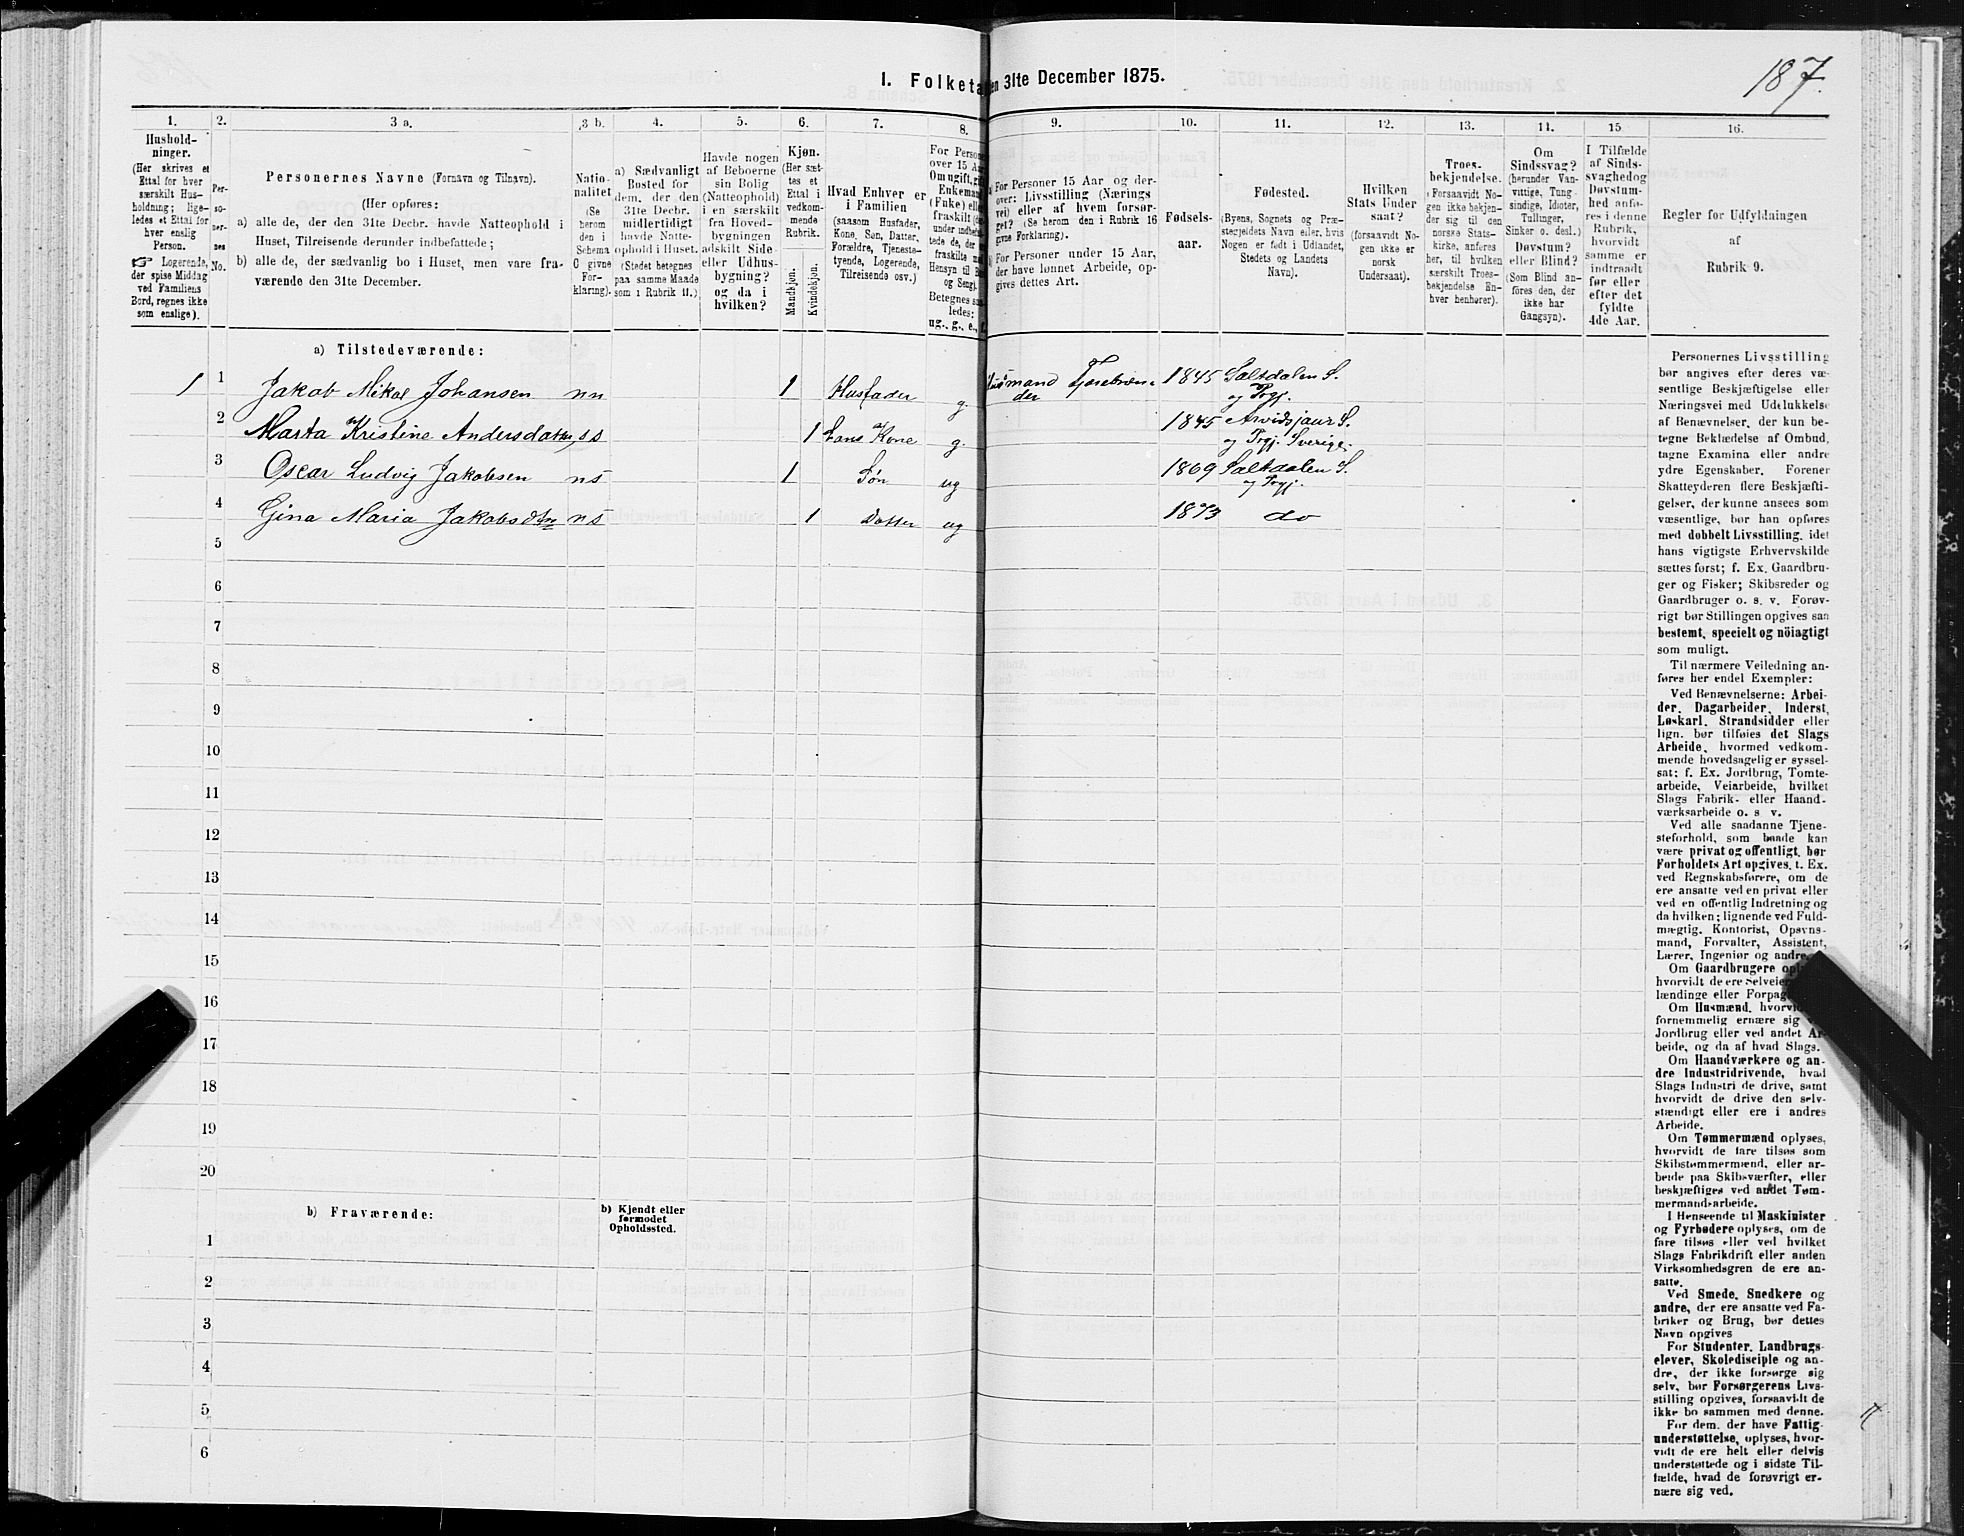 187.
1. Folketa en 31te December 1875.
1. 2. 3 a. 3 b. 4. 5. 6. 7. 8. 9. 10. 11. 12. 13. 14. 15 16.
Hushold-
ninger.
(Her skrives et
Ettal for hver
særskilt Hus-
holdning; lige-
ledes et Ettal for
hver enslig
Person.
☞ Logerende,
der spise Middag
ved Familiens
Bord, regnes ikke
som enslige).
Per-
so-
ner-
nes
No.
Personernes Navne (Fornavn og Tilnavn).
(Her opføres:
a) alle de, der den 31te Decbr. havde Natteophold i
Huset, Tilreisende derunder indbefattede;
b) alle de, der sædvanlig bo i Huset, men vare fra-
værende den 31te December.
Natio-
nalitet
(Se
herom
den i
Schema
C givne
For-
klaring).
a) Sædvanligt
Bosted for
dem, der den
31te Decbr.
midlertidigt
havde Natte-
ophold i Huset.
(Stedet betegnes
paa samme Maade
som i Rubrik 11.)
Havde nogen
af Beboerne
sin Bolig
(Natteophold)
i en særskilt
fra Hoved-
bygningen
adskilt Side-
eller Udhus-
bygning?
og da i
hvilken?
Kjøn.
(Her sæt-
tes et
Ettal i
vedkom-
mende
Rubrik.
Mandkjøn.
Kvindekjøn.
Hvad Enhver er
i Familien
(saasom Husfader,
Kone, Søn, Datter,
Forældre, Tjeneste-
tyende, Logerende,
Tilreisende osv.)
For Person
over 15 Aa
Om ugift, g
Enkemand
(Fuke) ell
fraskilt
under indbef
tede de, der
fraskilte
Hensyn til B
og Seng).
Betegnes sa
ledes:
ug., g., e.,
a) For Personer 15 Aar og der-
over: Livsstilling (Nærings
vei) eller af hvem forsør-
get? (Se herom den i Rubrik 16
givne Forklaring).
b) For Personer under 15 Aar,
der have lønnet Arbeide, op-
gives dettes Art.
Fødsels-
aar.
Fødested.
(Byens, Sognets og Præ-
stegjeldets Navn eller, hvis
Nogen er født i Udlandet,
Stedets og Landets
Navn).
Hvilken
Stats Under
saat?
(forsaavidt No-
gen ikke er
norsk
Undersaat).
Troes-
bekjendelse.
(Forsaavidt No-
gen ikke bekjen-
der sig til den
norske Stats-
kirke, anføres
her, til hvilken
særskilt Troes-
bekjendelse En-
hver henhører).
Om
Sindssvag?
(herunder Van-
vittige, Tung-
sindige, Idioter,
Tullinger,
Sinker o. desl.)
Døvstum?
eller Blind?
(Som Blind an-
føres den, der
ikke har
Gangsyn).
I Tilfælde
af Sinds-
svaghed og
Døvstum-
hed anfø-
res i denne
Rubrik,
hvorvidt
samme er
indtraadt
før eller
efter det
fyldte
4de Aar.
Regler for Udfyldningen
af
Rubrik 9.
a) Tilstedeværende:
1 1 Jakob Mikal Johansen nn 1 Husfader g. Husmand 1845 Saltdalen S.
og Prgj.
2 Marta Kristine Andersdatter ss 1 hans Kone g. 1845 Arvidsjaur S.
og Prgj. Sverige.
3 Oscar Ludvig Jakobsen ns 1 Søn ug 1869 Saltdalen S.
og Prgj.
4 Gina Maria Jakobsdtn ns 1 Datter ug 1873 do
5
6
7
8
9
10
11
12
13
14
15
16
17
18
19
20
b) Fraværende:
b) Kjendt eller
formodet
Opholdssted.
1
2
3
4
5
6
Personernes Livsstilling
bør angives efter deres væ-
sentlige Beskjæftigelse eller
Næringsvei med Udelukkelse
af Benævnelser, der kun be-
tegne Beklædelse af Ombud,
tagne Examina eller andre
ydre Egenskaber. Forener
Skatteyderen flere Beskjæfti-
gelser, der kunne ansees som
væsentlige, bør han opføres
med dobbelt Livsstilling, idet
hans vigtigste Erhvervskilde
sættes først; f. Ex. Gaardbru-
ger og Fisker; Skibsreder og
Gaardbruger o. s. v. Forøv-
rigt bør Stillingen opgives saa
bestemt, specielt og nöiagtigt
som muligt.
Til nærmere Veiledning an-
føres her endel Exempler:
Ved Benævnelserne: Arbei-
der, Dagarbeider, Inderst,
Løskarl, Strandsidder eller
lign. bør tilføies det Slags
Arbeide, hvormed vedkom-
mende hovedsagelig er syssel-
sat; f. Ex. Jordbrug, Tomte-
arbeide, Veiarbeide, hvilket
Slags Fabrik- eller Haand-
værksarbeide o. s. v.
Ved alle saadanne Tjene-
steforhold, som baade kan
være privat og offentligt, bør
Forholdets Art opgives, t. Ex.
ved Regnskabsførere, om de
ere ansatte ved en privat eller
ved en offentlig Indretning og
da hvilken; lignende ved Fuld-
mægtig, Kontorist, Opsyns-
mand, Forvalter, Assistent,
Lærer, Ingeniør og andre.
Om Gaardbrugere opl
hvorvidt de ere Selveier
lændinge eller Forpag
Om Husmænd, hvorvid
fornemmelig ernære sig
Jordbrug eller ved andet Ar
beide, og da af hvad Slags.
Om Haandværkere og an-
dre Industridrivende, hvad
Slags Industri de drive, samt
hvorvidt de drive den selv-
stændigt eller ere i andres
Arbeide.
Om Tømmermænd oplyses,
hvorvidt de fare tilsøs som
Skibstømmermænd, eller ar-
beide paa Skibsværfter, eller
beskjæftiges ved andet Tøm-
mermandsarbeide.
I Henseende til Maskinister
og Fyrbødere oplyses, om de
fare tilsøs eller ved hvilket
Slags Fabrikdrift eller anden
Virksomhedsgren de ere an-
satte.
Ved Smede, Snedkere og
andre, der ere ansatte ved Fa-
briker og Brug, bør dettes
Navn opgives
For Studenter, Landbrugs-
elever, Skoledisciple og an-
dre, der ikke forsørge sig
selv, bør Forsørgerens Livs-
stilling opgives, forsaavidt de
ikke bo sammen med denne.
For dem, der have Fattig-
understøttelse, oplyses, hvor-
vidt de ere helt eller delvis
understøttede og i sidste Til-
fælde, hvad de forøvrigt er-
nære sig ved.